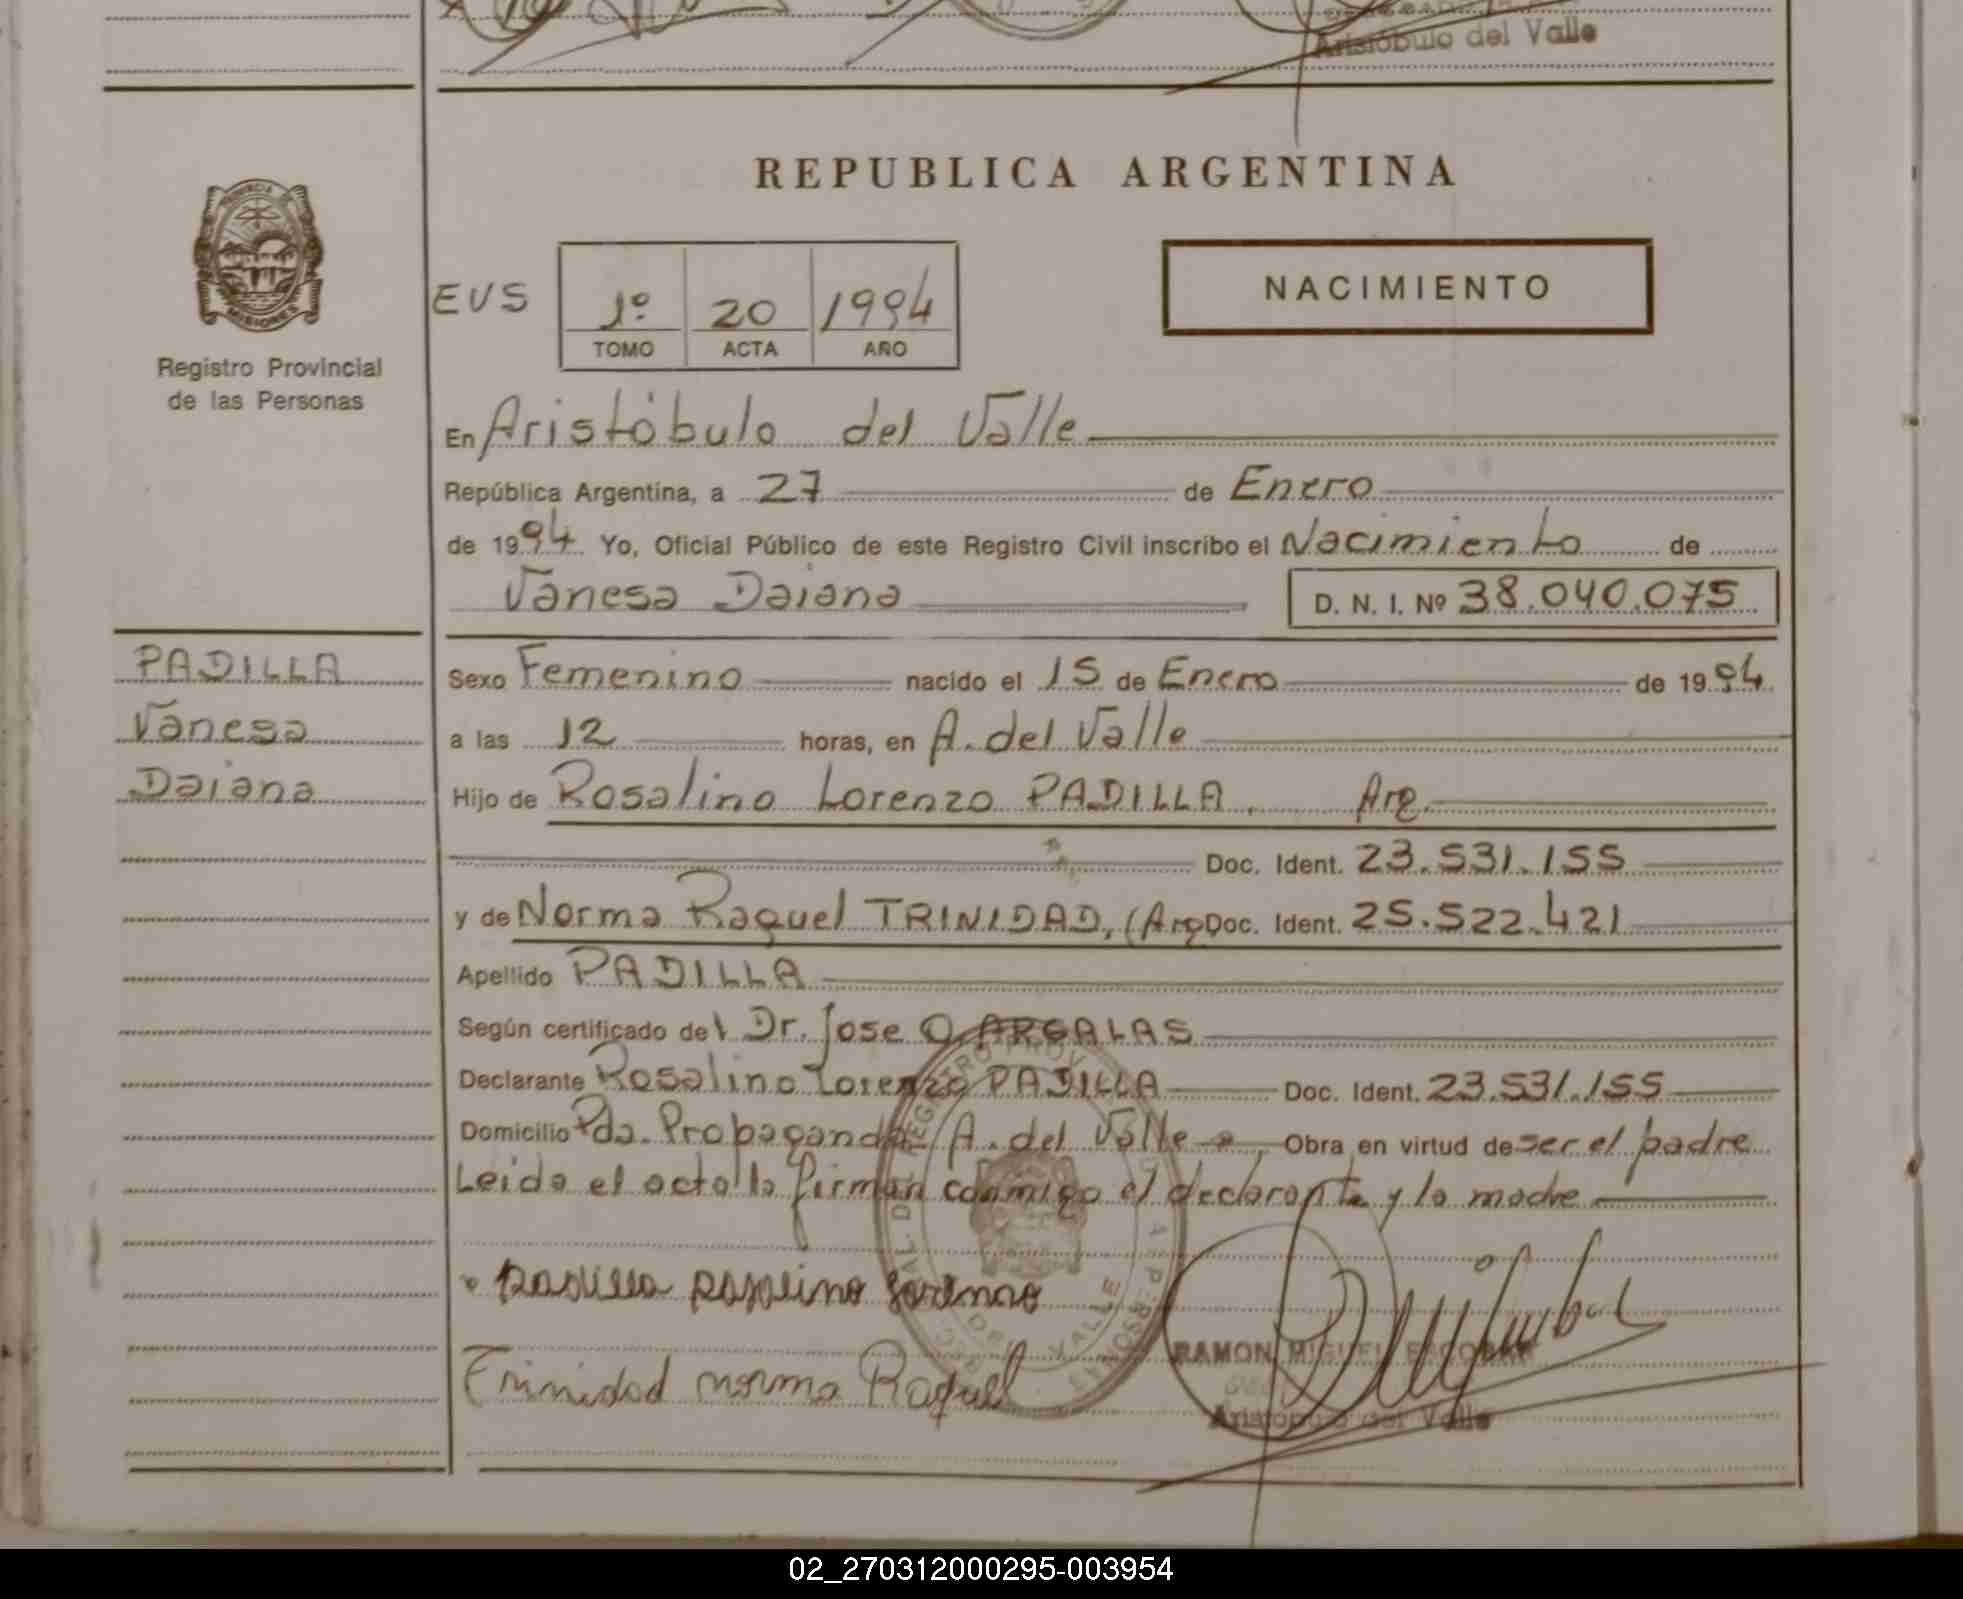 Aristóbulo del Valle
REPUBLICA ARGENTINA
PROVINCIA DE
MISIONES
Registro Provincial
de las Personas
EVS
1º 20 1994
TOMO ACTA AÑO
NACIMIENTO
En Aristóbulo del Valle
República Argentina, a 27 de Enero
de 1994 Yo, Oficial Público de este Registro Civil inscribo el Nacimiento de
Vanesa Daiana D. N. I. Nº 38.040.075
PADILLA
Vanesa
Daiana
Sexo Femenino nacido el 15 de Enero de 1994
a las 12 horas, en A. del Valle
Hijo de Rosalino Lorenzo PADILLA, Arg.
Doc. Ident. 23.531.155
y de Norma Raquel TRINIDAD, (Arg Doc. Ident. 25.522.421
Apellido PADILLA
Según certificado del Dr. Jose O. ARGALAS
Declarante Rosalino Lorenzo PADILLA Doc. Ident. 23.531.155
Domicilio Pda. Propaganda, A. del Valle Obra en virtud de ser el padre
Leida el acta la firman conmigo el declarante y la madre
Padilla Rosalino Lorenzo
Trinidad norma Raquel
RAMON MIGUEL ESCOBAR
Aristóbulo del Valle
02_270312000295-003954